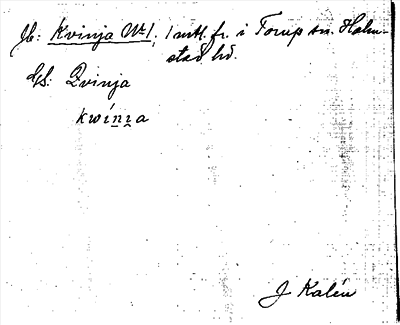 Jb: Kvinja No 1, 1 mtl. fr. i Torup sn. Halm-
stad hd.
Us: Qvinja
kwinja
J Kalén